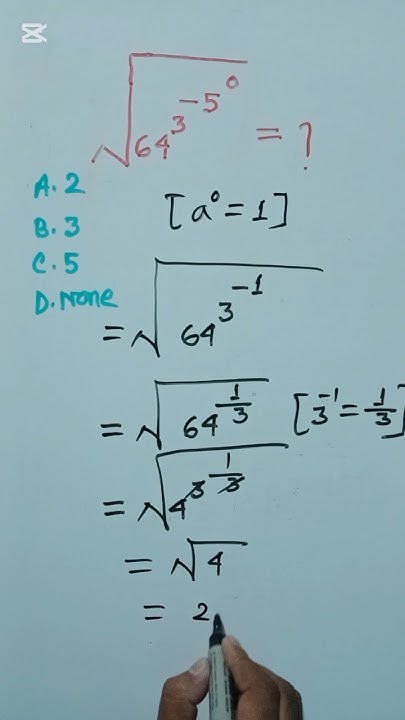 √64^3^-5^0 = ?
A. 2
B. 3
C. 5
D. None
[a^0 = 1]
= √64^3^-1
= √64^1/3 [3^-1 = 1/3]
= √4^3^1/3
= √4
= 2